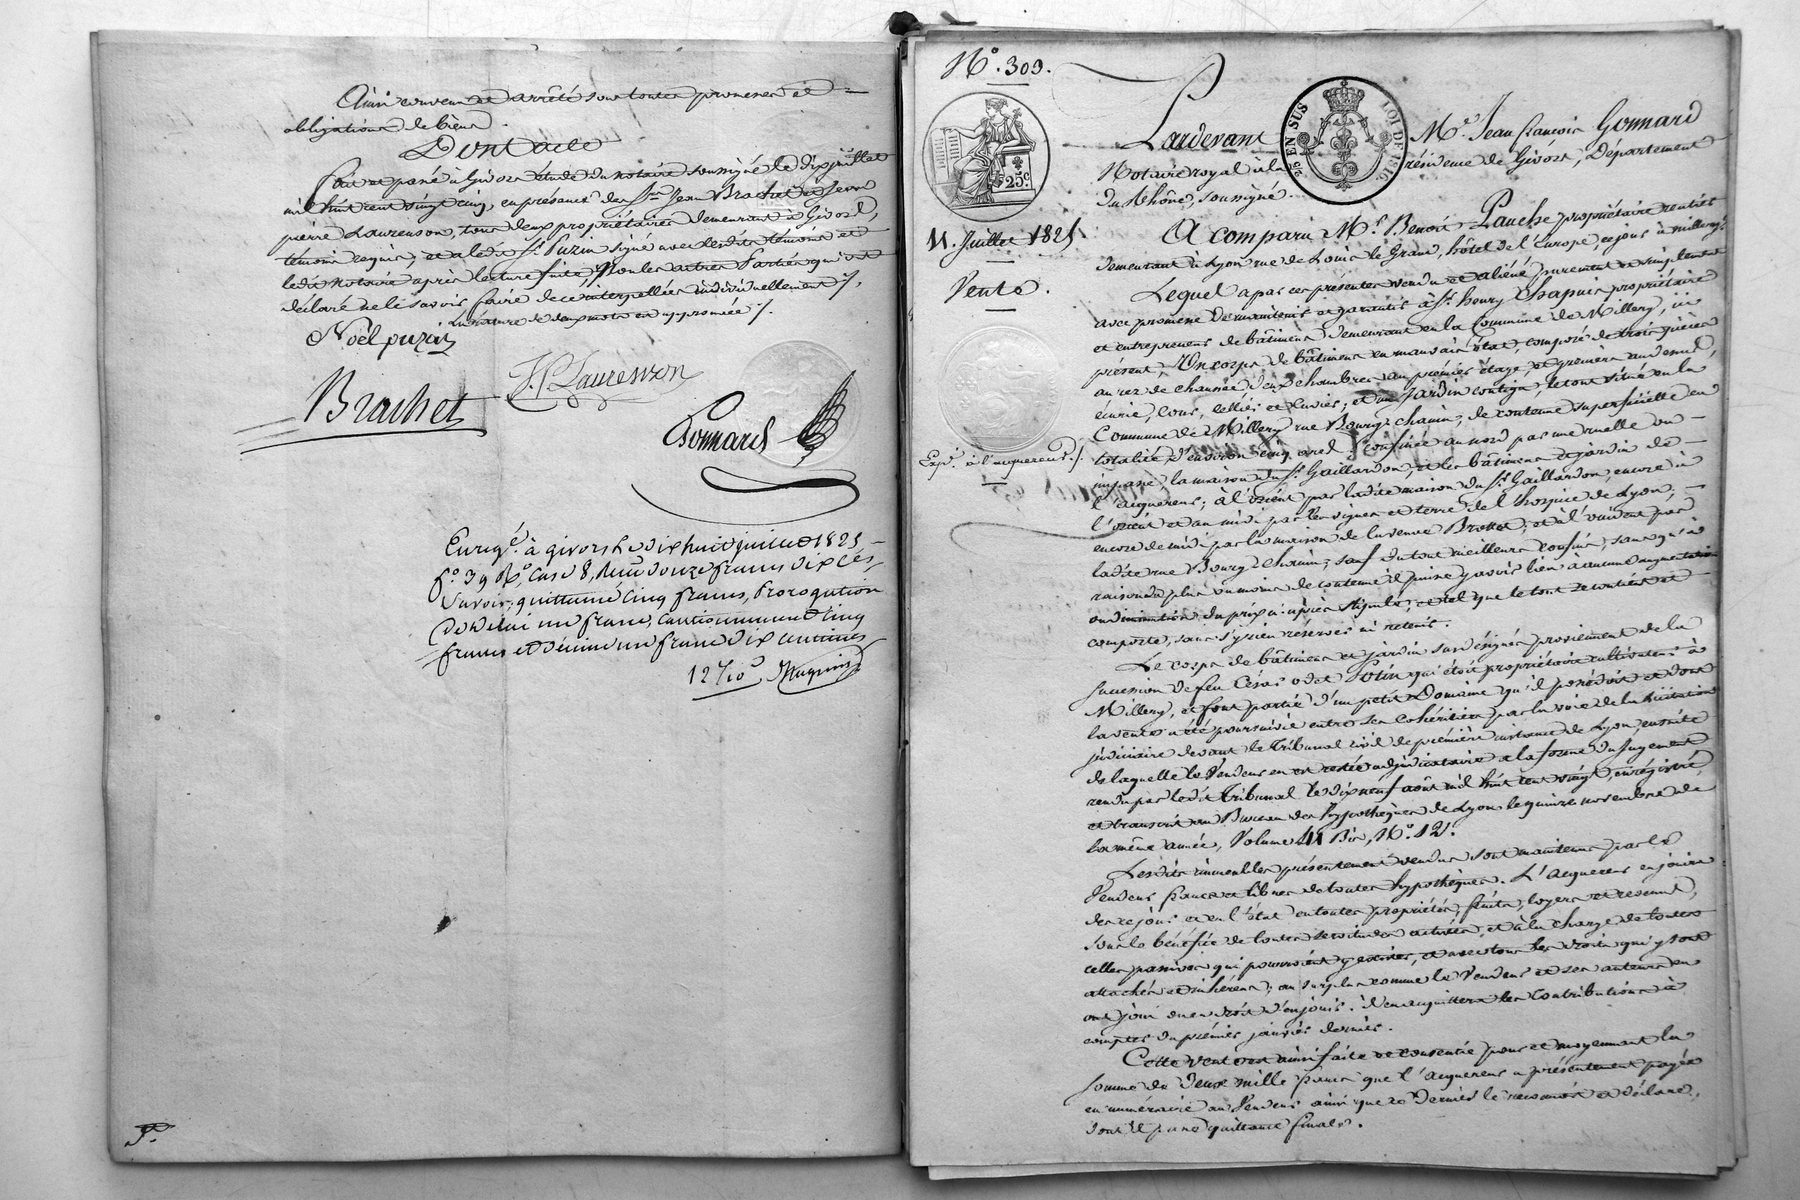 Ainsi convenu et arrêté sous toutes promesses et
obligations de biens.
Dont acte
fait et passé à Givors étude du notaire soussigné le dix juillet
mil huit cent vingt cinq, en présence des Srs Jean Brachet et Jean
pierre Laurenson, tous deux propriétaires demeurant à Givors,
témoins requis; et a ledit Sr. Puzin signé avec lesdits témoins et
ledit notaire après lecture faite, Non les autres parties qui ont
déclaré ne le savoir faire de ce interpellées individuellement ./.
la rature de deux mots est approuvée ./.
Noël puzin
J. P. Laurenson
Brachet
Gonnard
Enregé. à givors le dix huit juillet 1825
fo. 39 Ro. Case 8, Reçu douze francs dix ces,
Savoir, quittance cinq francs, Prorogation
de délai un franc, Cautionnement cinq
francs et décime un franc dix centimes
12f 10c
No. 303.
25c
2e EN SUS
LOI DE 1816
11. Juillet 1825
Vente.
Expé. à l'acquereur ./.
Pardevant Me. Jean françois Gonnard
Notaire royal à la résidence de Givors, Département
du Rhône, soussigné.
A comparu Mr. Benoît Planche propriétaire rentier
demeurant à Lyon rue de Louis le Grand, hôtel de l'Europe, ce jour à millery.
Lequel a par ces présentes vendu et aliéné purement et simplement
avec promesse de maintenir et garantir à Sr. henry Chapuis propriétaire
et entrepreneur de bâtimens demeurant en la Commune de Millery, ici
présent, Un corps de bâtimens en mauvais état, composé de trois pièces
au rez de chaussée, deux chambres au premier étage, et greniers au dessus,
écurie, cour, cellier et cuvier; et un jardin contigu, le tout situé en la
Commune de Millery rue Bourg-chanin, de contenue superficielle en
totalité, d'environ cinq ares, confinée au nord par une ruelle ou
impasse, la maison du Sr. Gaillardon, et les bâtimens et jardin de
l'acquereur; à l'orient par ladite maison du Sr. Gaillardon, encore à
l'orient et au midi par les vignes et terre de l'hospice de Lyon;
encore de midi par la maison de la veuve Brottet; et à l'occident par
ladite rue Bourg-chanin; sauf du tout meilleurs confins, sans qu'à
raison du plus ou moins de contenue il puisse y avoir lieu à aucune augmentation
ou diminution du prix ci-après stipulé, et tel que le tout se contient et
comporte, sans s'y rien réserver ni retenir.
Le corps de bâtimens et jardin susdésignés proviennent de la
succession de feu César odet Potin qui était propriétaire cultivateur à
Millery, et font partie d'un petit Domaine qu'il possédait et dont
la vente a été poursuivie entre ses cohéritiers par la voie de la licitation
judiciaire devant le Tribunal civil de première instance de Lyon, ensuite
de laquelle le Vendeur en est resté adjudicataire à la forme du jugement
rendu par ledit Tribunal le dix neuf août mil huit cent vingt, enregistré
et transcrit au Bureau des hypothèques de Lyon le quinze novembre de
la même année, Volume 41 Bis, No. 12.
Lesdits immeubles présentement vendus sont maintenus par le
Vendeur francs et libres de toutes hypothèques. L'acquereur en jouira
dès ce jour et en l'état en toutes propriétés, fruits, loyers et revenus,
sous le bénéfice de toutes servitudes actives, et à la charge de toutes
celles passives qui pourraient y exister, et avec tous les droits qui y sont
attachés et inhérens, au surplus comme le Vendeur et ses auteurs en
ont joui ou eu droit d'en jouir. Il en acquittera les Contributions à
compter du premier janvier dernier.
Cette vente est ainsi faite et consentie pour et moyennant la
somme de Deux mille francs que l'acquereur a présentement payée
en numéraire au Vendeur ainsi que ce Dernier le reconnait et déclare,
dont il passe quittance finale.